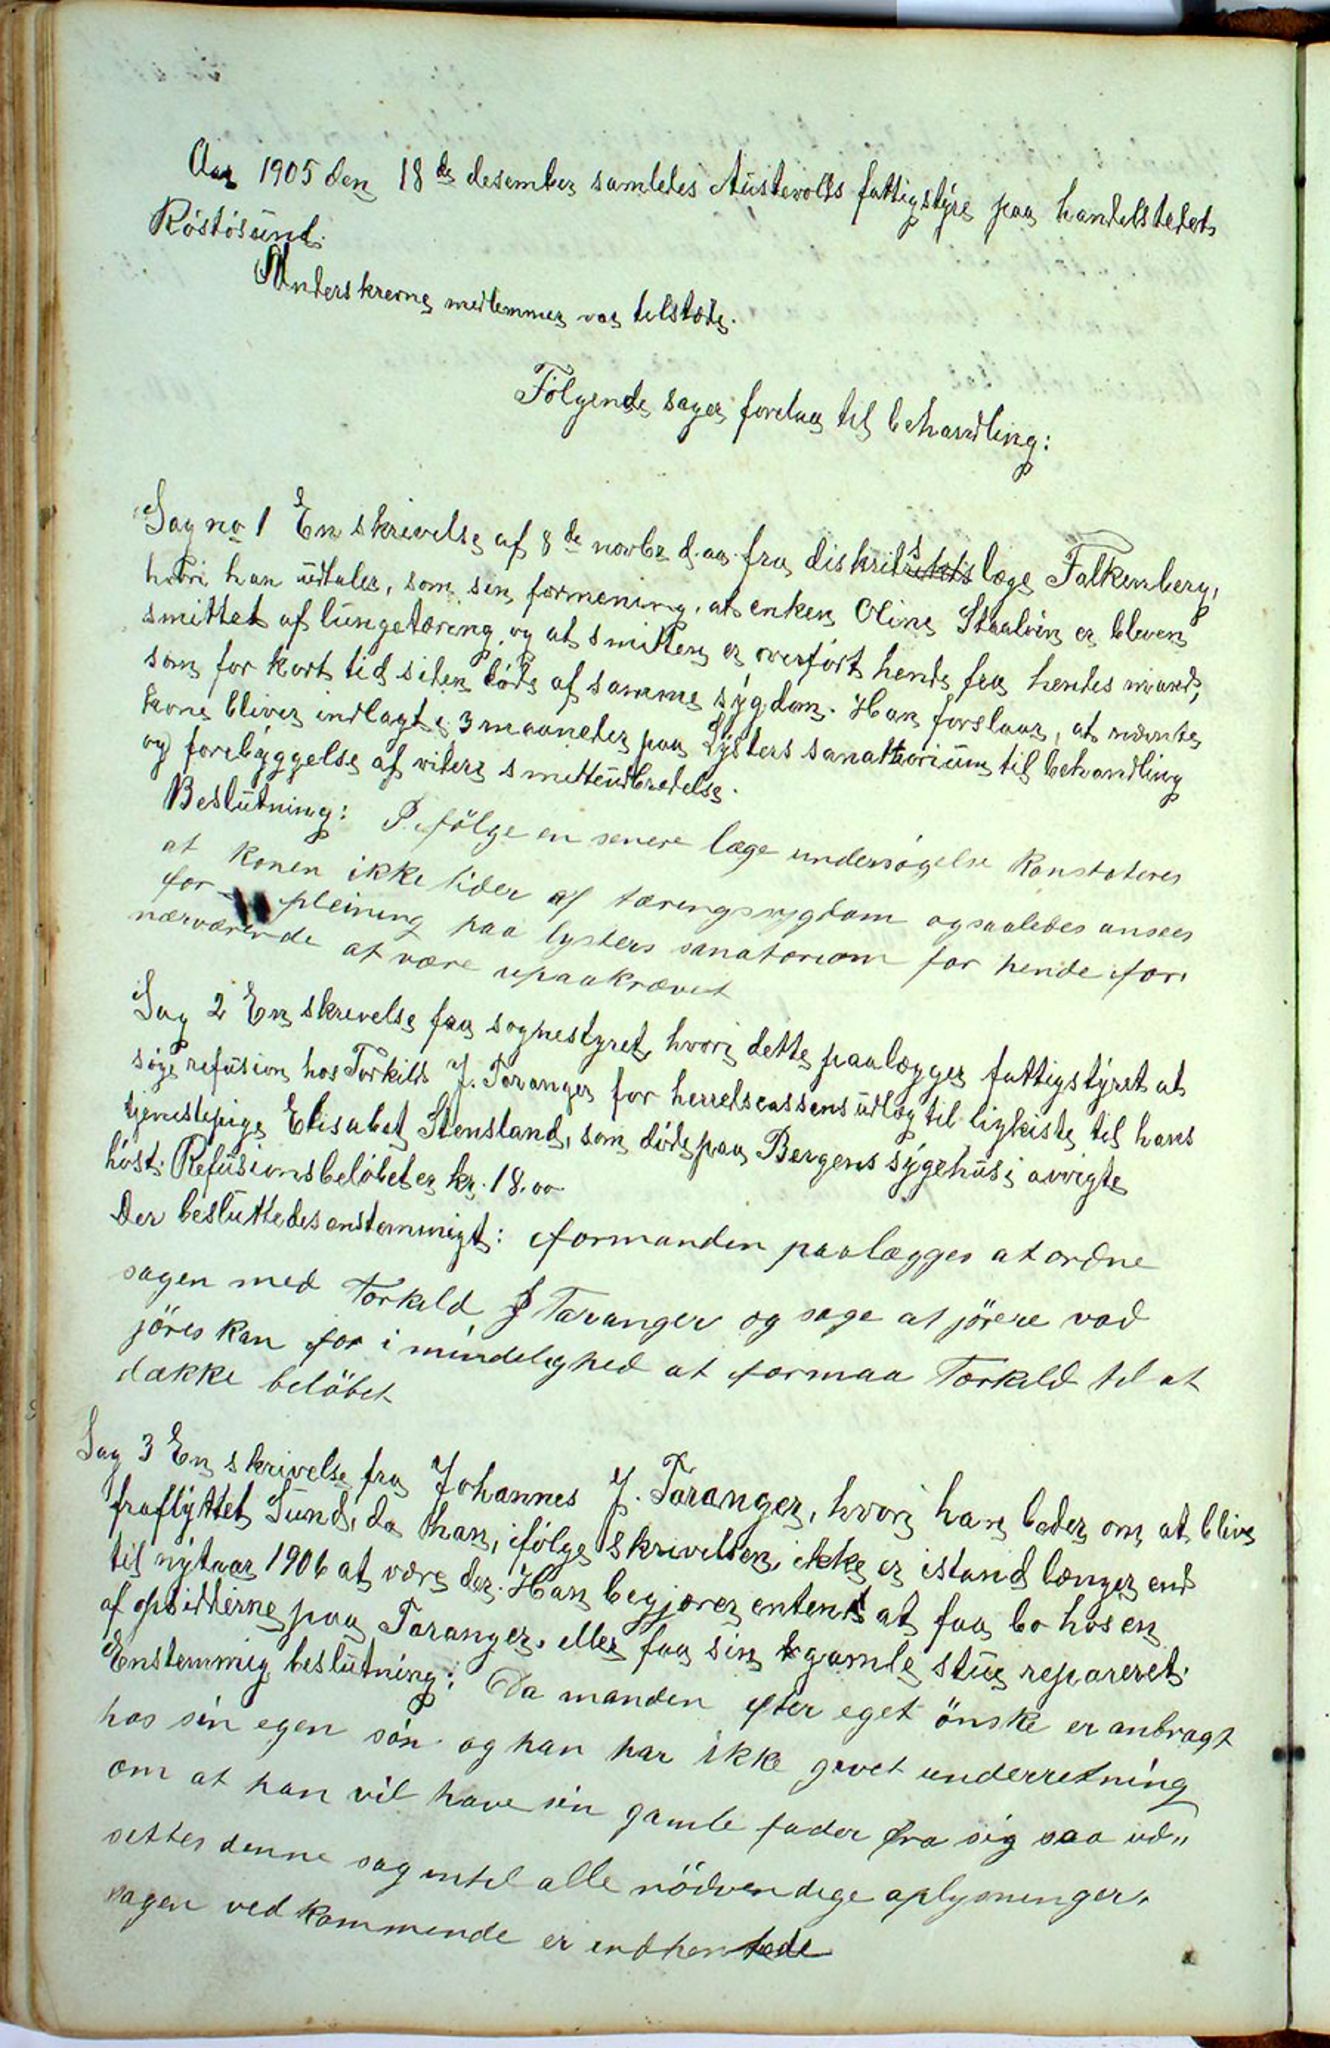 Aar 1905 den 18de desember samledes Austevolls fattigstyre paa handelstedet
Röstösund.
Underskrevne medlemmer var tilstæde.
Følgende sager forelaa til behandling:
Sag no 1 En skrivelse af 8de novbr d.aa. fra diskrikts læge Falkenberg,
hvori han udtaler, som sin formening, at enken Oline Stualvin er bleven
smittet af lungetæring og at smitten er overført hende fra hendes mand,
som for kort tid siden døde af samme sygdom. Han forslaar, at nævnte
kone bliver indlagt i 3 maaneder paa Lysters sanattorium til behandling
og forebyggelse af videre smitteudbredelse.
Beslutning: Ifölge en senere læge undersøgelse konstateres
at konen ikke lider af tæringssygdom og saaledes ansees
for pleining paa lysters sanatorium for hende for
nærværende at være upaakrævet
Sag 2 En skrivelse fra sognestyret, hvori dette paalægger fattigstyret at
søge refusion hos Torkild J. Taranger for herredscassens udlæg til ligkiste til hans
tjenestepige Elisabet Stensland, som døde paa Bergens sygehus i avvigte
høst. Refusionsbeløbet er kr. 18.00
Der besluttedes enstemmigt: formanden paalægges at ordne
sagen med Torkild J Taranger og søge at jörere vad
jöres kan for i mindelighed at formaa Torkild til at
dække belöbet
Sag 3 En skrivelse fra Johannes J. Taranger, hvori han beder om at blive
fraflyttet Sund, da han, ifølge skrivelsen, ikke er istand længer end
til nytaar 1906 at være der. Han begjærer enten at faa bo hos en
af opsidderne paa Taranger, eller faa sin gamle stue repareret.
Enstemmig beslutning: Da manden efter eget önske er anbragt
hos sin egen sön og han har ikke givet underretning
om at han vil have sin gamle fader fra sig saa ud„
settes denne sag intil alle nödvendige oplysninger,
sagen ved kommende er indhentede